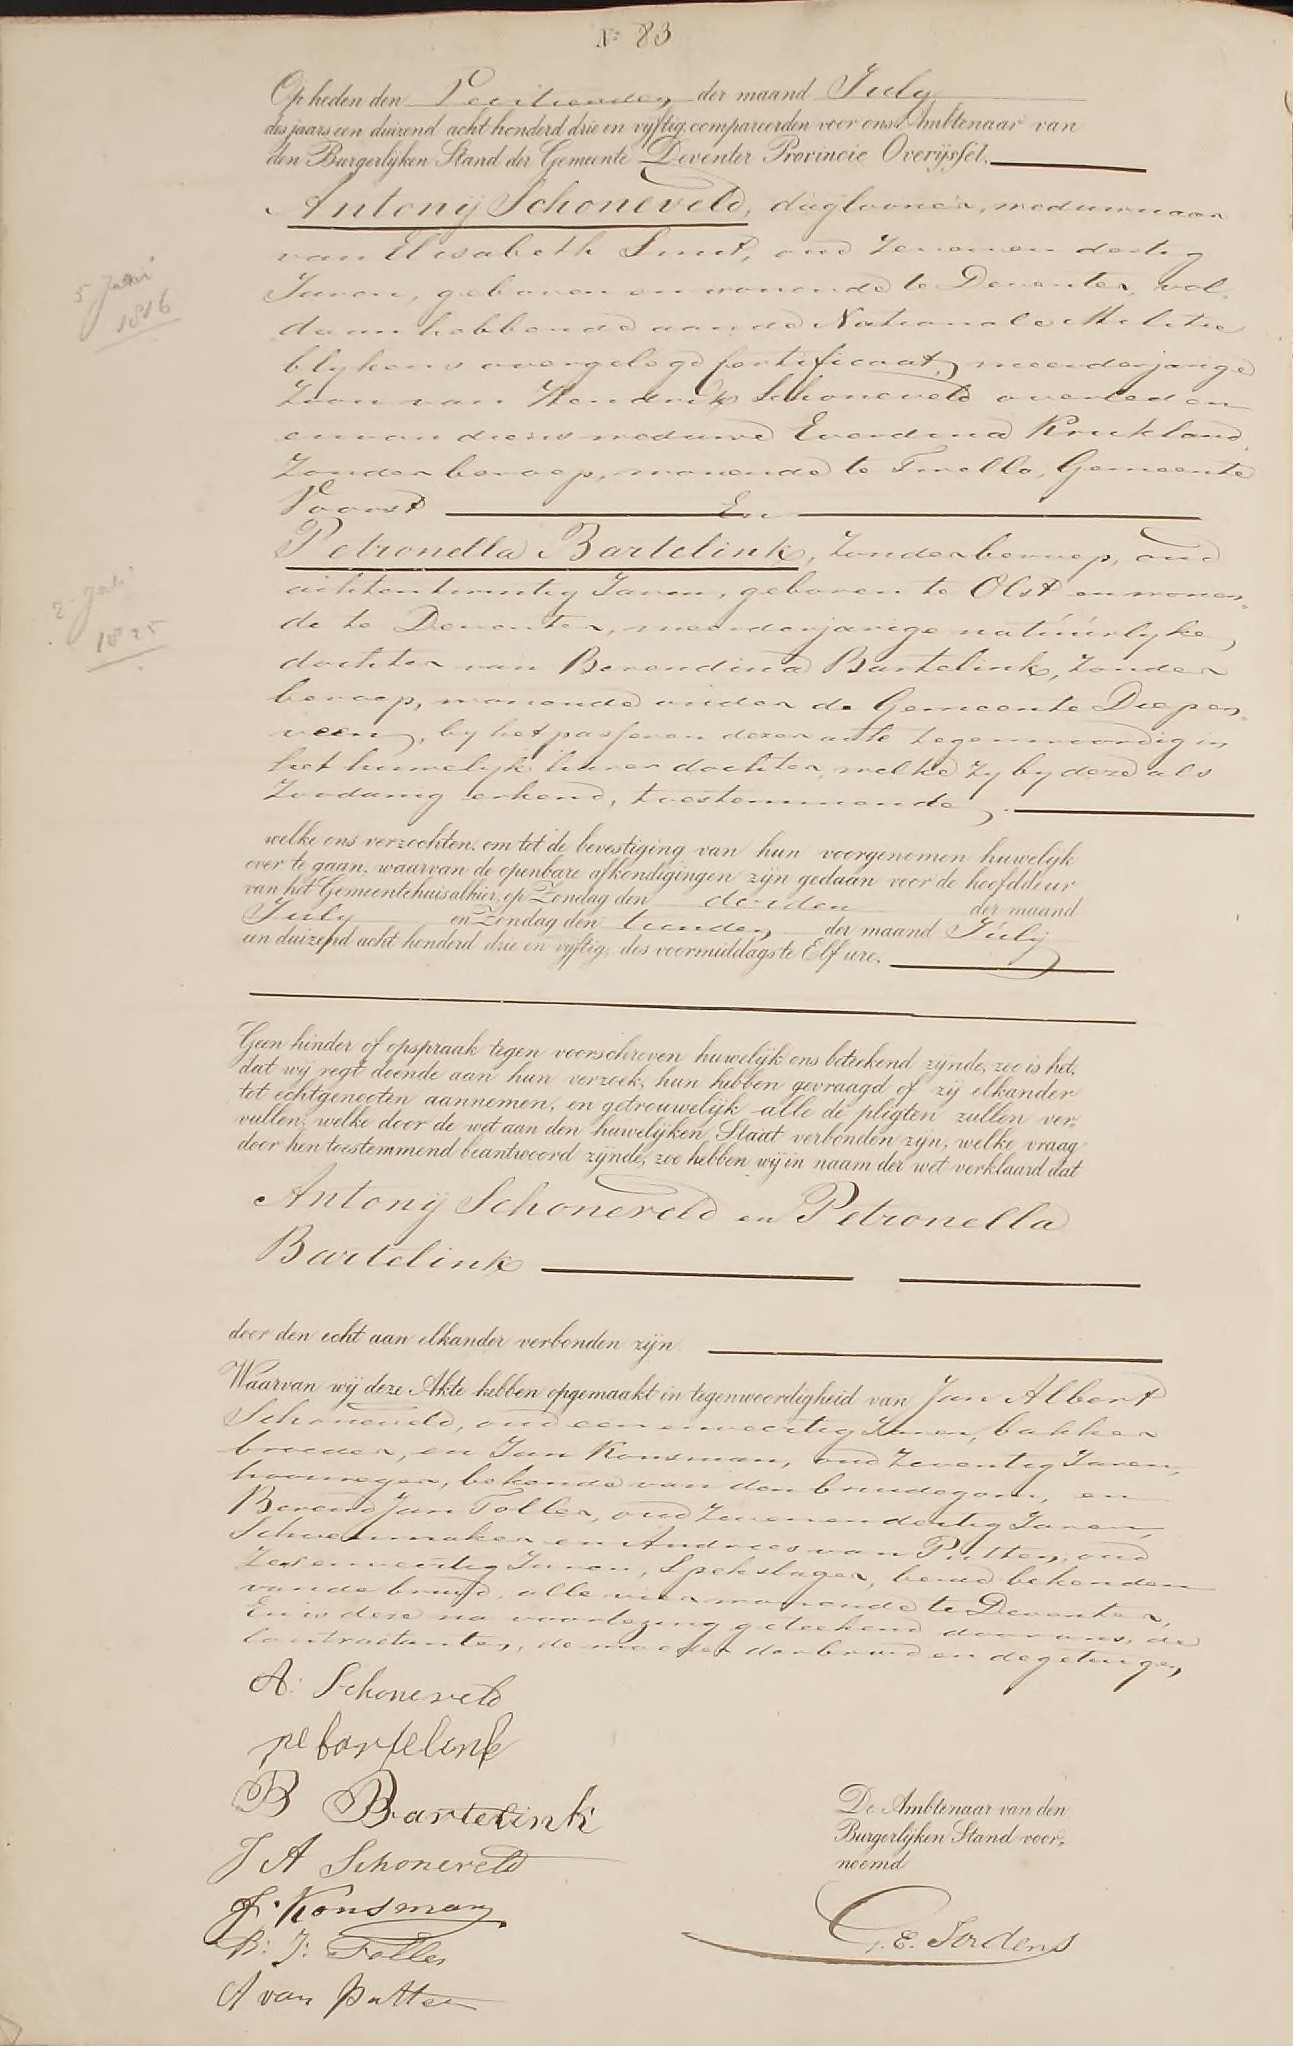 No 83
Op heden den Veertienden der maand July
des jaars een duizend acht honderd drie en vijftig, compareerden voor ons Ambtenaar van
den Burgerlijken Stand der Gemeente Deventer Provincie Overijssel.
Antonij Schoneveld, daglooner, weduwnaar
van Elisabeth Smit, oud zevenen dertig
Jaren, geboren en wonende te Deventer, vol-
daan hebbende aan de Nationale Militie
blykens overgelegd certificaat, meerderjarige
Zoon van Hendrik Schoneveld overleden
en van diens weduwe Everdina Krukland,
zonder beroep, wonende te Twello, Gemeente
Voorst En
Petronella Bartelink, zonder beroep, oud
achtentwintig Jaren, geboren te Olst en wonen-
de te Deventer, meerderjarige natuurlyke,
dochter van Berendina Bartelink, zonder
beroep, wonende onder de Gemeente Diepen-
veen, by het passeren dezer acte tegenwoordig in
het huwelyk hunner dochter, welke zy by deze als
zoodanig erkend, toestemmende,
welke ons verzochten, om tot de bevestiging van hun voorgenomen huwelijk
over te gaan, waarvan de openbare afkondigingen zijn gedaan voor de hoofddeur
van het Gemeentehuis alhier, op Zondag den derden der maand
July en Zondag den tienden der maand July
een duizend acht honderd drie en vijftig, des voormiddags te Elf ure.
Geen hinder of opspraak tegen voorschreven huwelijk ons beteekend zijnde, zoo is het,
dat wij regt doende aan hun verzoek, hun hebben gevraagd of zij elkander
tot echtgenooten aannemen, en getrouwelijk alle de pligten zullen ver-
vullen, welke door de wet aan den huwelijken Staat verbonden zijn, welke vraag
door hen toestemmend beantwoord zijnde, zoo hebben wij in naam der wet verklaard dat
Antonij Schoneveld en Petronella
Bartelink
door den echt aan elkander verbonden zijn
Waarvan wij deze Akte hebben opgemaakt in tegenwoordigheid van Jan Albert
Schoneveld, oud een en veertig Jaren, bakker
broeder, en Jan Konsman, oud Zeventig Jaren,
bekende van den bruidegom, en
Berend Jan Toller, oud zevenen dertig Jaren,
Schoenmaker en Andries van Putten, oud
Zes en veertig Jaren, Spekslager, beide bekenden
van de bruid, alle vier wonende te Deventer,
En is deze na voorlezing geteekend door ons, de
Contractanten, de moeder der bruid en de getuigen,
A. Schoneveld
pe bartelink
B Bartelink
J A Schoneveld
J. Konsman
B: J: Toller
A van Putten
De Ambtenaar van den
Burgerlijken Stand voor-
noemd
G. E. Jordens
5 Janri
1816
2 Juli
1825